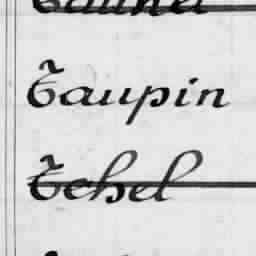 Taupin
Tchel